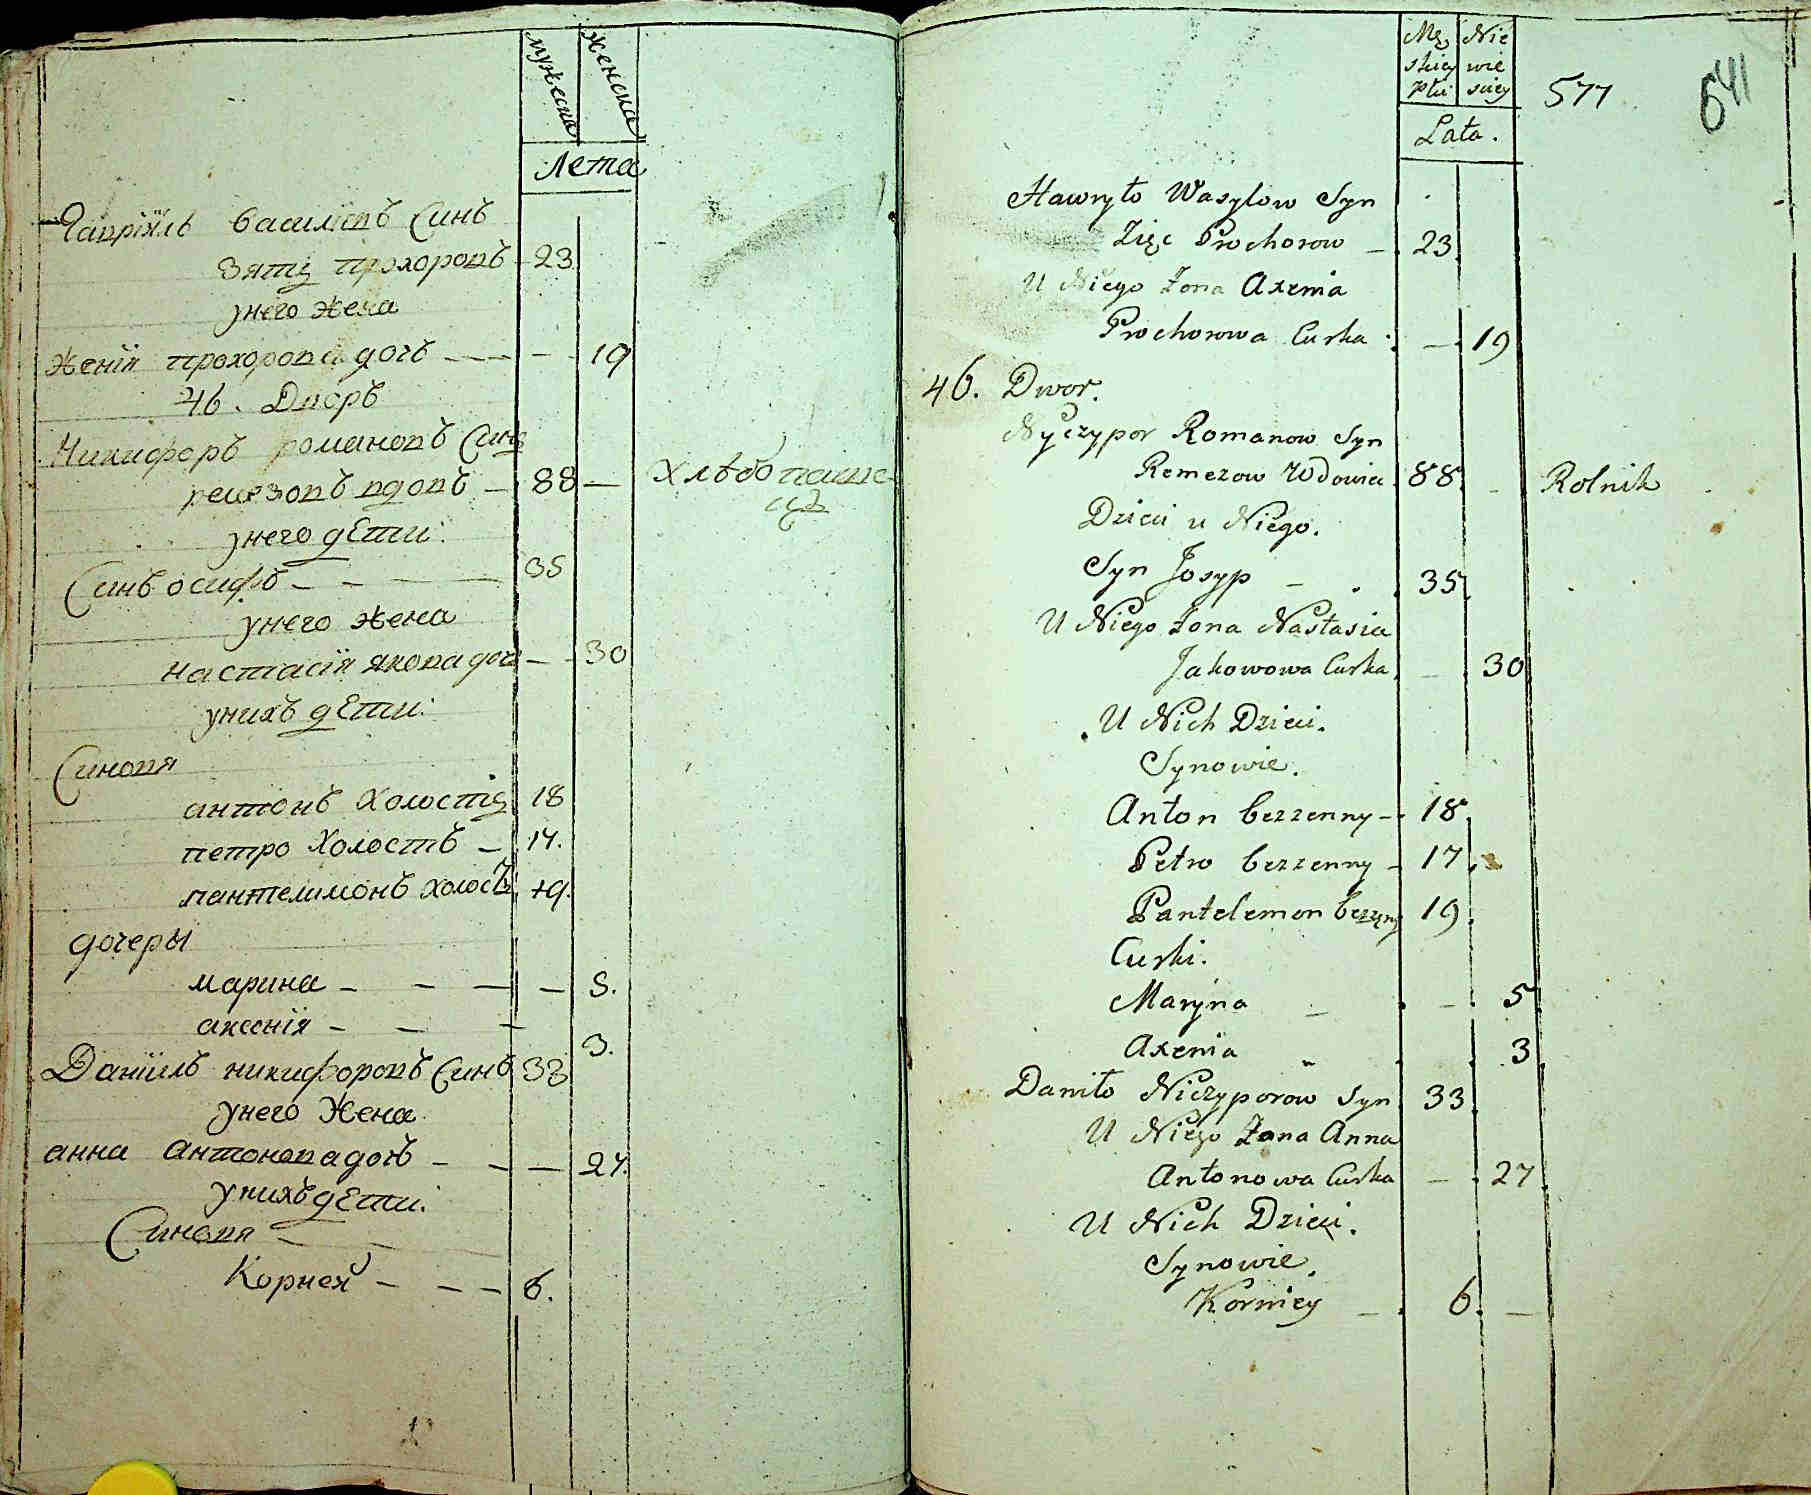 мужеска
женска
Лета
Гавріилъ василіевъ Синъ
зять прохоровъ - 23
унего жена
жения прохорова дочъ - - - - 19
46. Дворъ
Никифоръ романовъ Синъ
ремезовъ вдовъ - 88 - Хлѣбопаше
цъ
унего дѣти:
Синъ осифъ - - - - 35
унего жена
настасія якова дочъ - - 30
унихъ дѣти:
Синовя
антонъ Холость 18
петро Холостъ - 17.
пантелимонъ холостъ 19.
дочеры
марина - - - - 5.
аксенія - - - 3.
Даниилъ никифоровъ Синъ 33
унего Жена
анна Антонова дочъ - - - 27.
унихъ дѣти:
Синовя -
Корней - - - 6.
Mę Nie
skiey wie
płci sciey
577
541
Lata.
Hawryło Wasylow Syn
Zięc Prochorow - 23
U Niego Zona Axenia
Prochorowa Curka - 19
46. Dwor.
Nyczypor Romanow Syn
Remezow Wdowiec 88. - Rolnik
Dzieci u Niego.
Syn Josyp - 35
U Niego Zona Nastasia
Jakowowa Curka - 30
U Nich Dzieci.
Synowie.
Anton bezzenny - 18.
Petro bezzenny - 17.
Pantelemon bezzeny 19.
Curki.
Maryna - - 5
Axenia - 3
Daniło Niczyporow Syn 33
U Niego Zona Anna
Antonowa Curka - 27
U Nich Dzieci.
Synowie.
Korniey - 6. -